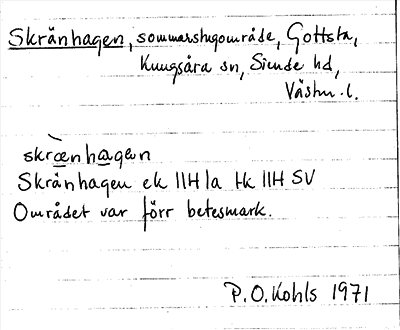 Skränhagen, sommarstugområde, Gottsta,
Kungsåra sn, Siende hd,
Västm. l.
skræ̀nhagen
Skränhagen ek 11H 1a Hk 11H SV
Området var förr betesmark.
P.O. Kohls 1971